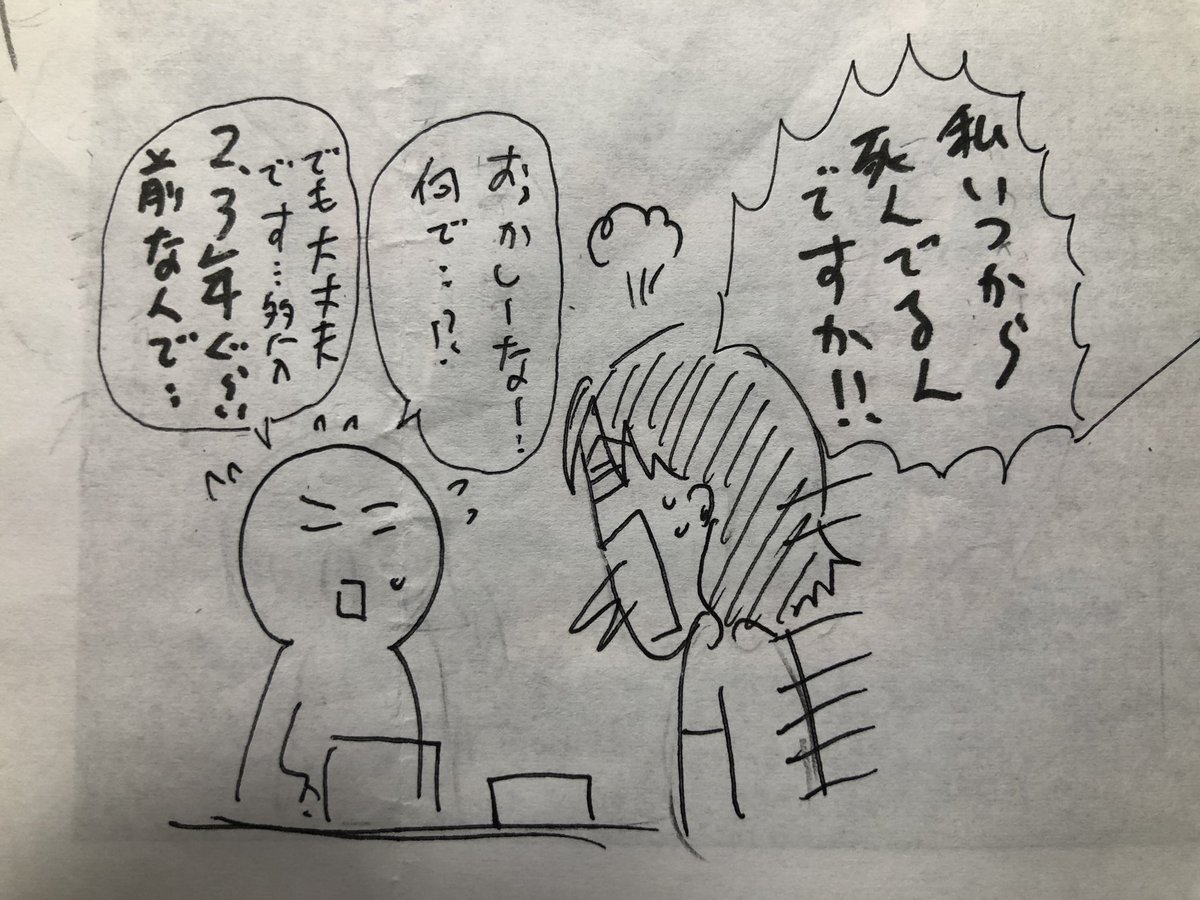 私いつから
死んでるん
ですか!!
おっかしーなー…
何で…!?
でも大丈夫
です…多分
2、3年ぐらい
前なんで…